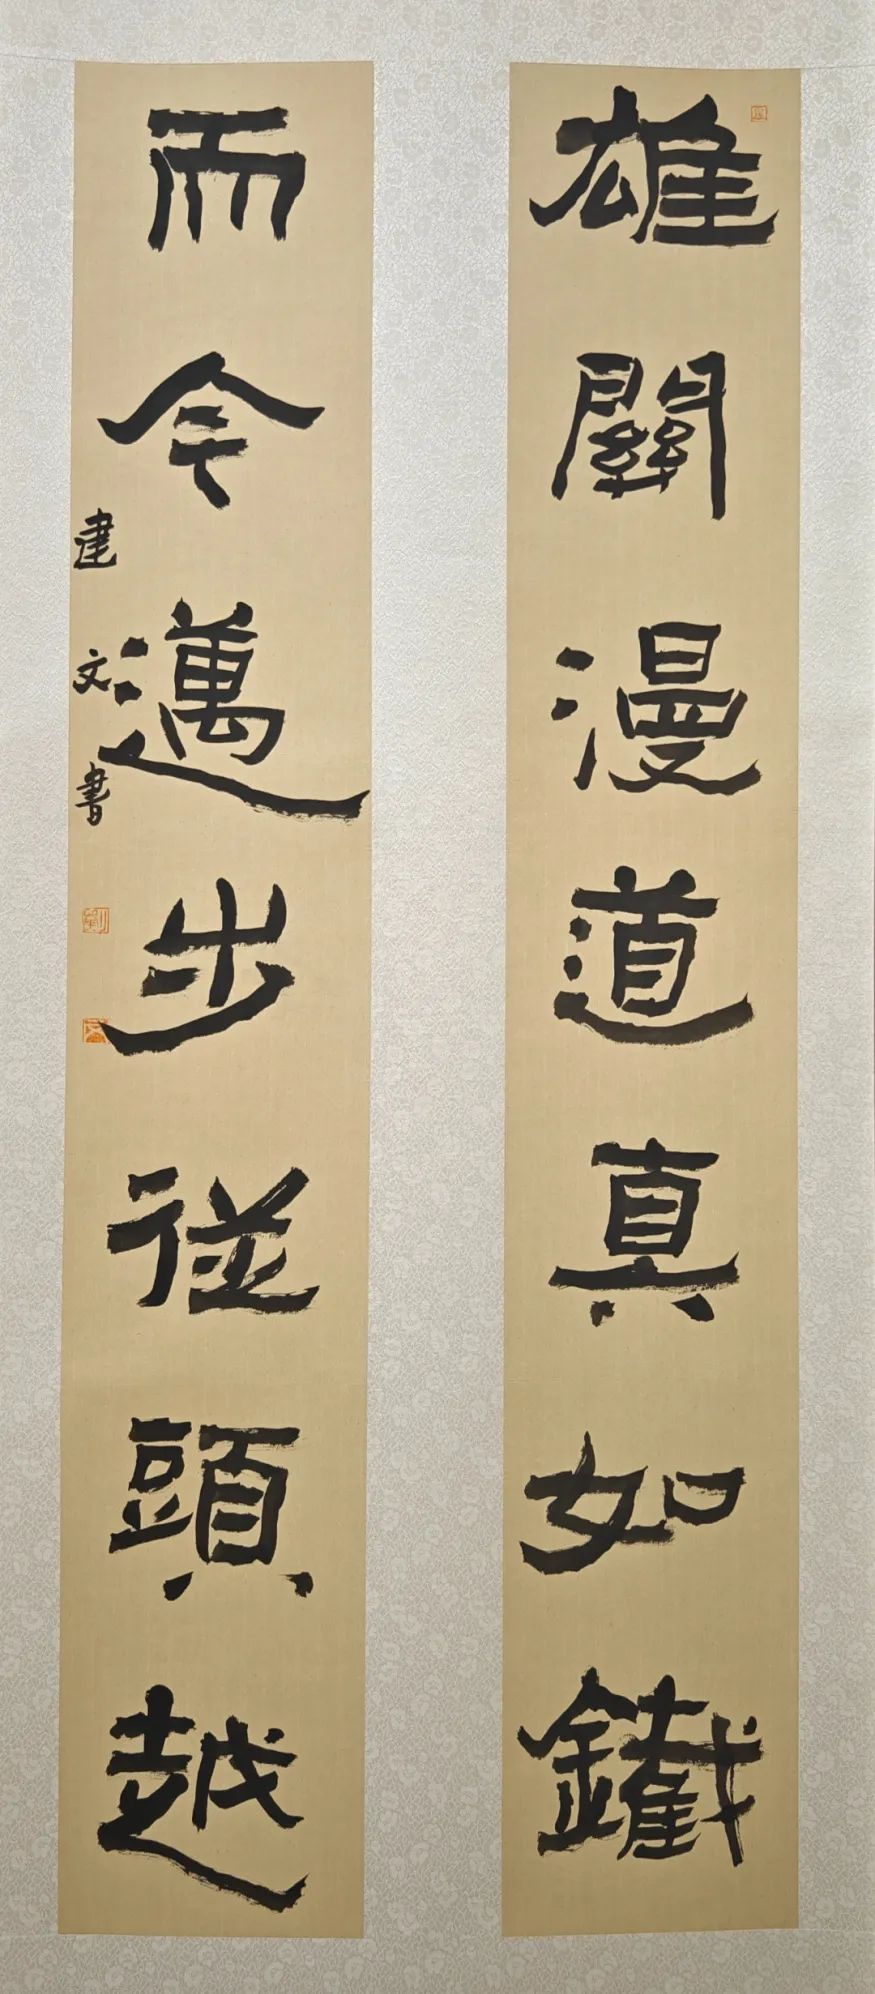 雄關漫道真如鐵
而令邁步從頭越
建文書